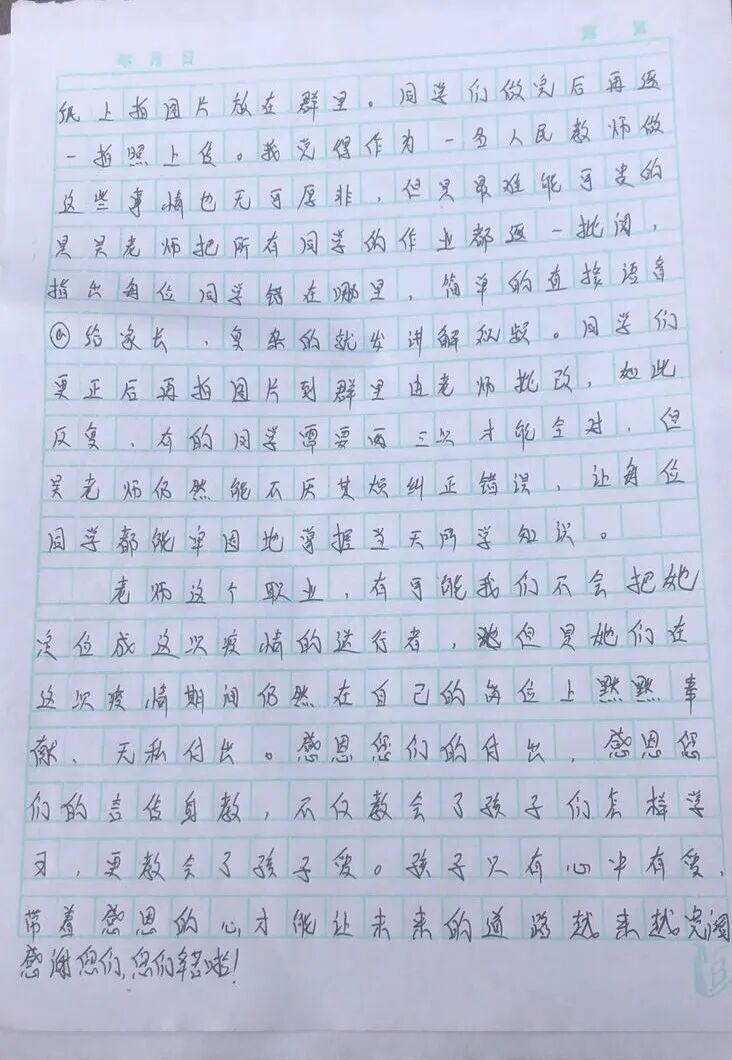 年 月 日
第 页
纸上拍图片放在群里。同学们做完后再逐
一拍照上传。我觉得作为一名人民教师做
这些事情也无可厚非,但是最难能可贵的
是吴老师把所有同学的作业都逐一批阅,
指出每位同学错在哪里,简单的直接语音
@给家长,复杂的就发讲解视频。同学们
更正后再拍图片到群里让老师批改,如此
反复,有的同学需要两三次才能全对,但
吴老师仍然能不厌其烦纠正错误,让每位
同学都能牢固地掌握当天所学知识。
老师这个职业,有可能我们不会把她
定位成这次疫情的逆行者,但是她们在
这次疫情期间仍然在自己的岗位上默默奉
献、无私付出。感恩您们的付出,感恩您
们的言传身教,不仅教会了孩子们怎样学
习,更教会了孩子爱。孩子只有心中有爱,
带着感恩的心才能让未来的道路越来越宽阔
感谢您们,您们辛苦啦!